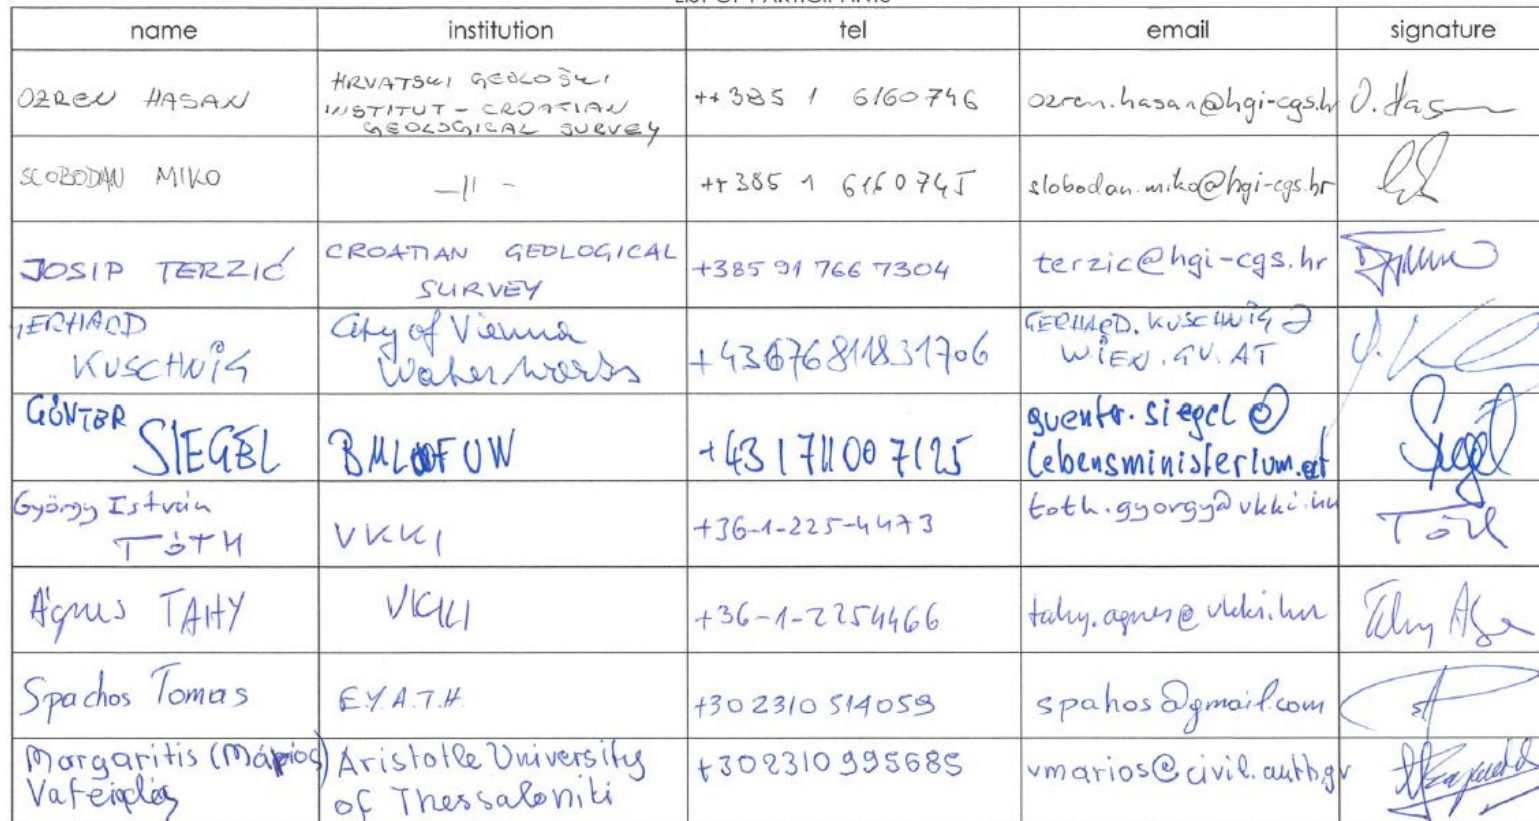 LIST OF PARTICIPANTS
name institution tel email signature
OZREN HASAN HRVATSKI GEOLOŠKI INSTITUT - CROATIAN GEOLOGICAL SURVEY ++385 1 6160746 ozren.hasan@hgi-cgs.hr O. Has
SLOBODAN MIKO -||- ++385 1 6160745 slobodan.miko@hgi-cgs.hr
JOSIP TERZIĆ CROATIAN GEOLOGICAL SURVEY +385 91 766 7304 terzic@hgi-cgs.hr
GERHARD KUSCHNIG City of Vienna Waterworks +43676811831706 GERHARD.KUSCHNIG@WIEN.GV.AT
GÜNTER SIEGEL BMLFUW +43 1 71100 7125 guenter.siegel@lebensministerium.at Siegel
György István TÓTH VKKI +36-1-225-4473 toth.gyorgy@vkki.hu Tóth
Ágnes TAHY VKKI +36-1-2254466 tahy.agnes@vkki.hu Tahy Ágnes
Spachos Tomas E.Y.A.T.H. +30 2310 514059 spahos@gmail.com
Margaritis (Μάριος) Vafeiadis Aristotle University of Thessaloniki +302310995685 vmarios@civil.auth.gr